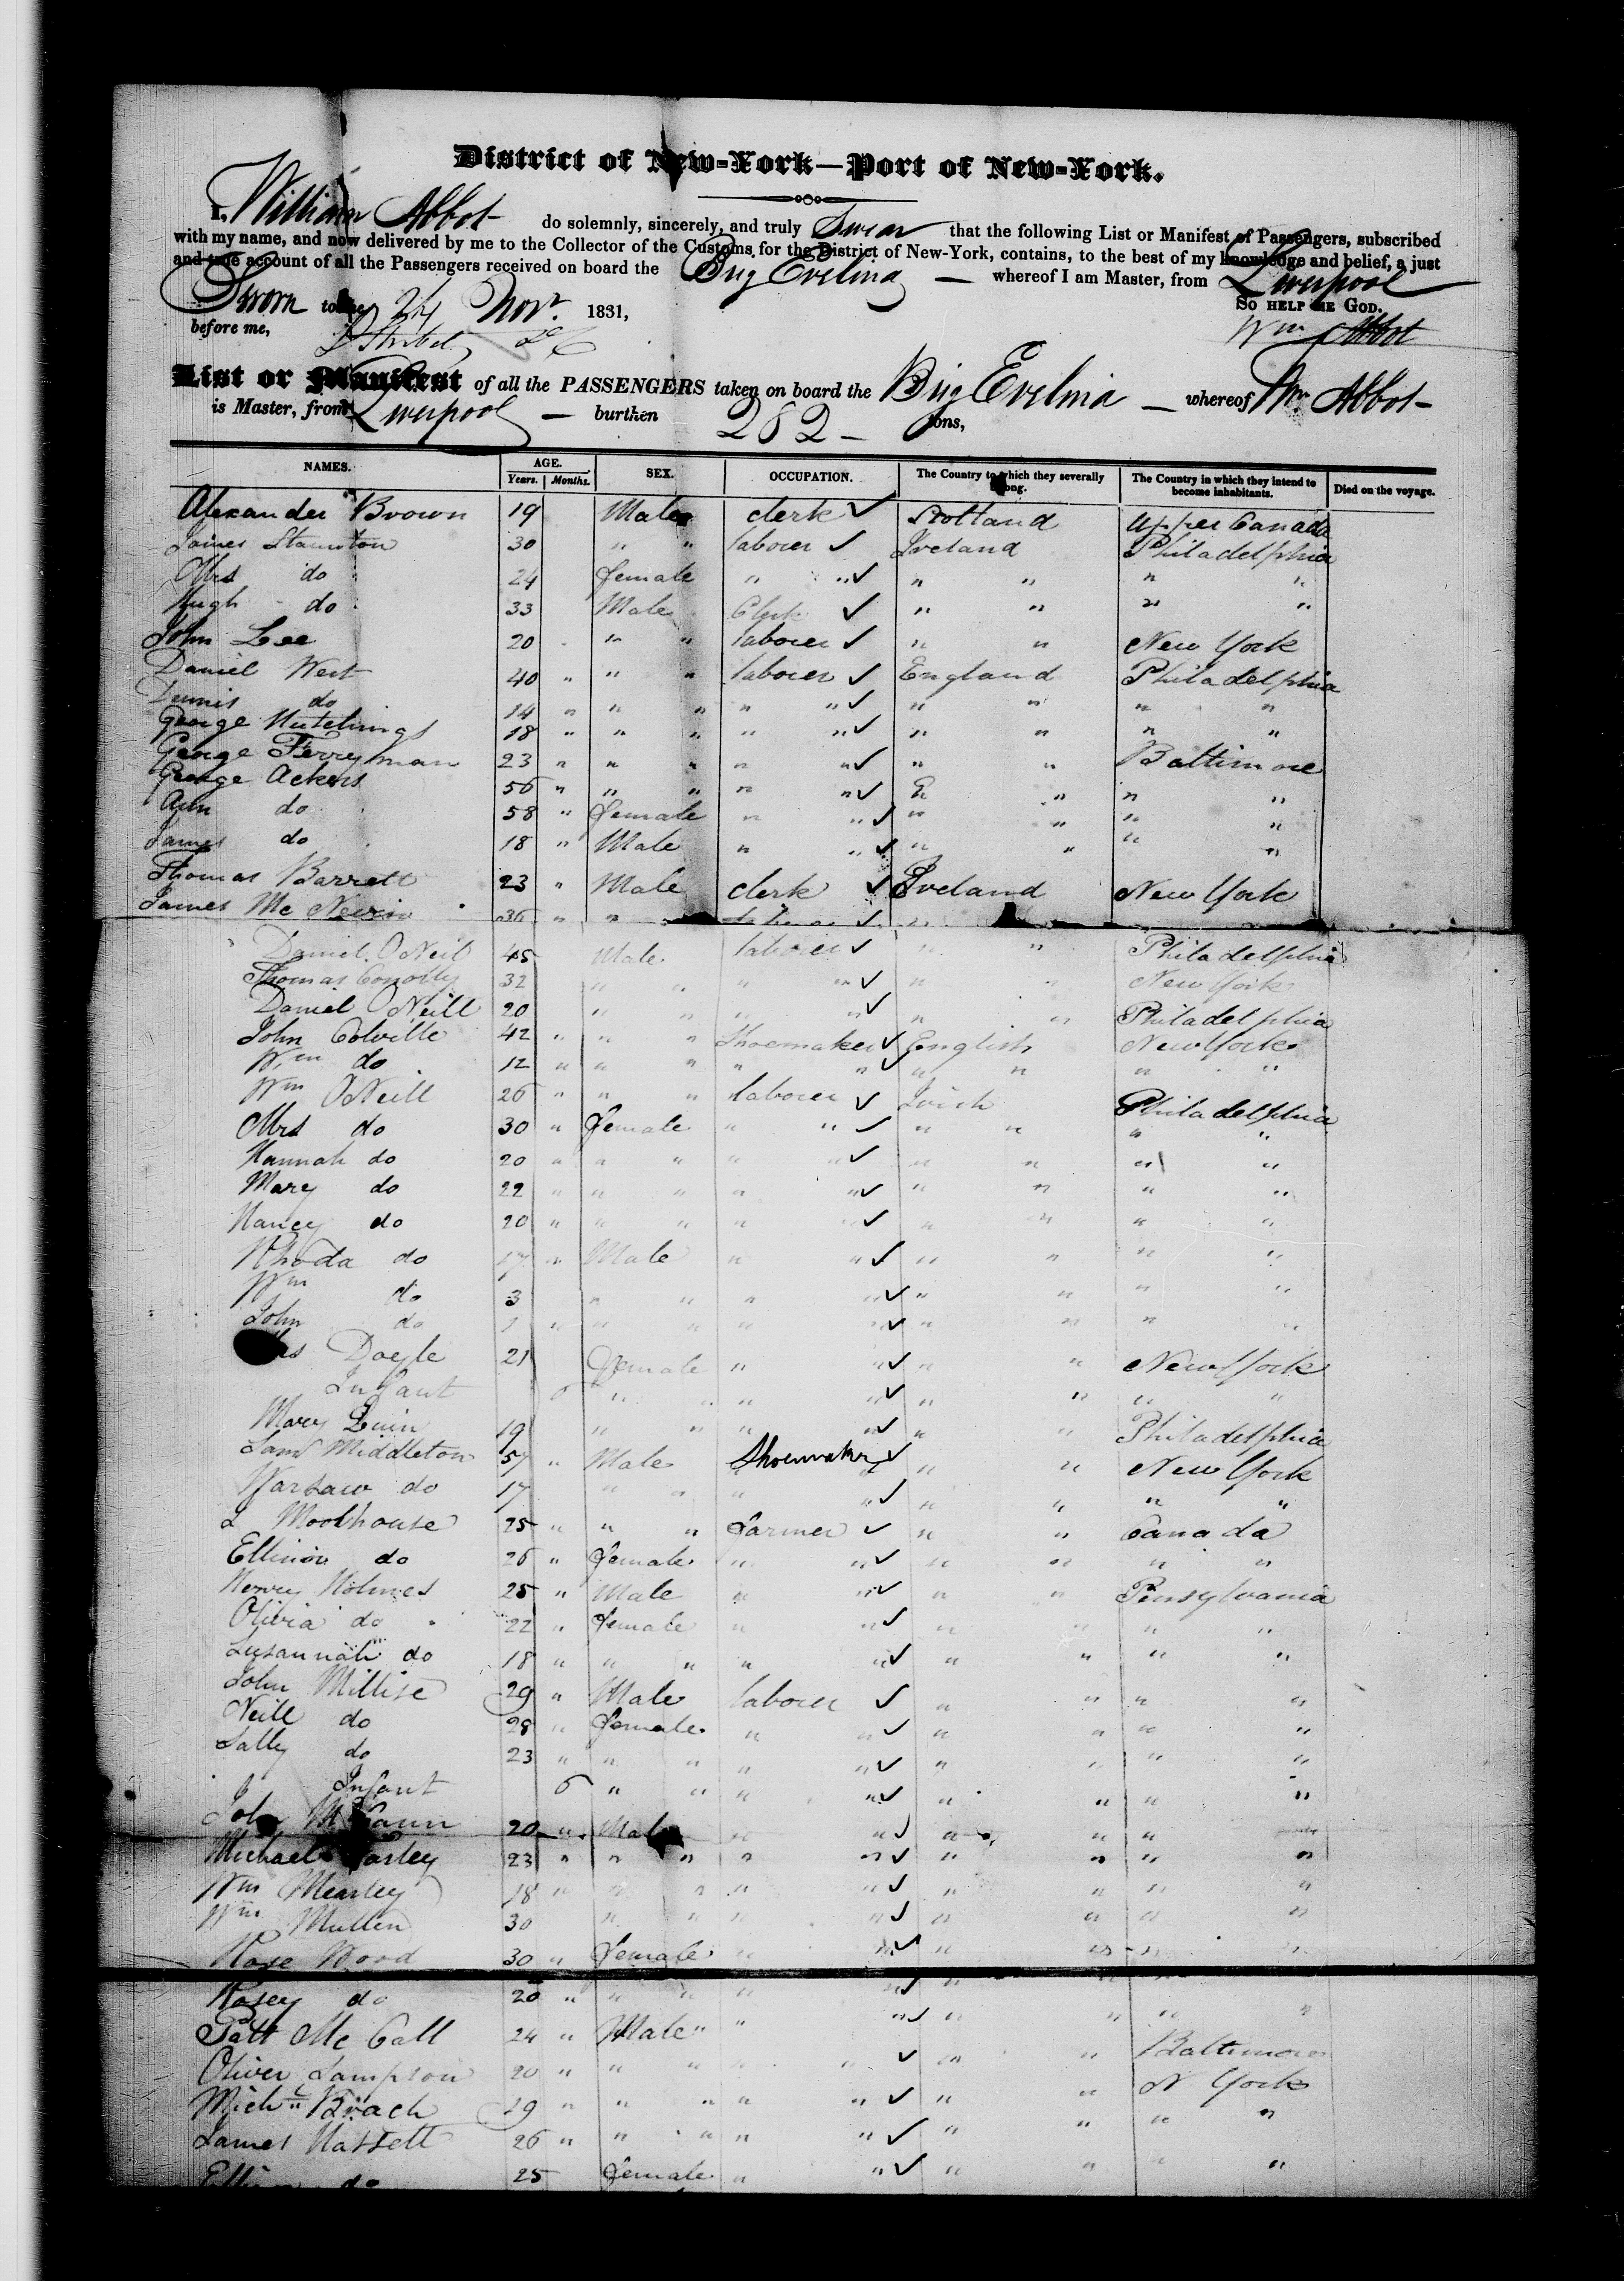 District of New-York—Port of New-York.
I, William Abbot do solemnly, sincerely, and truly Swear that the following List or Manifest of Passengers, subscribed
with my name, and now delivered by me to the Collector of the Customs for the District of New-York, contains, to the best of my knowledge and belief, a just
and true account of all the Passengers received on board the Brig Evelina — whereof I am Master, from Liverpool
Sworn to the 24 Novr. 1831, So help me God.
before me, Wm Abbot
List or Manifest of all the PASSENGERS taken on board the Brig Evelina — whereof Wm Abbot
is Master, from Liverpool — burthen 282 — tons,
NAMES. AGE. SEX. OCCUPATION. The Country to which they severally belong. The Country in which they intend to become inhabitants. Died on the voyage.
Years. Months.
Alexander Brown 19 Male clerk ✓ Scotland Upper Canada
James Stanton 30 " " laborer ✓ Ireland Philadelphia
Mrs do 24 female " " ✓ " " " "
Hugh do 33 Male Clerk ✓ " " " "
John Lee 20 " " laborer ✓ " " New York
Daniel West 40 " " " laborer ✓ England Philadelphia
Dennis do 14 " " " " " ✓ " " " "
George Hutchings 18 " " " " " ✓ " " " "
George Ferryman 23 " " " " " ✓ " " Baltimore
George Ackers 56 " " " " " ✓ E " " "
Ann do 58 " female " " ✓ " " " "
James do 18 " Male " " ✓ " " " "
Thomas Barrett 23 " Male clerk ✓ Ireland New York
James Mc 36 " " ✓
Daniel ONeil 45 Male laborer ✓ " " Philadelphia
Thomas Conolly 32 " " " " ✓ " " New York
Daniel ONeill 20 " " " " ✓ " " Philadelphia
John Colville 42 " " " Shoemaker ✓ English New York
Wm do 12 " " " " " ✓ " " " "
Wm ONeill 26 " " " laborer ✓ Irish Philadelphia
Mrs do 30 " female " " ✓ " " " "
Hannah do 20 " " " " " ✓ " " " "
Mary do 22 " " " " " ✓ " " " "
Nancy do 20 " " " " " ✓ " " " "
Rhoda do 17 " Male " " ✓ " " " "
Wm do 3 " " " " ✓ " " " "
John do 1 " " " " " ✓ " " " "
Doyle 21 female " " ✓ " " New York
Infant 6 " " " " ✓ " " " "
Mary Quin 19 " " " " ✓ " " Philadelphia
Saml Middleton 57 " Male Shoemaker ✓ " " New York
Warsaw do 17 " " " " ✓ " " " "
Moolhouse 25 " " " farmer ✓ " " Canada
Ellinor do 26 " female " " ✓ " " " "
Henry Holmes 25 " Male " " ✓ " " Pensylvania
Olivia do 22 " female " " ✓ " " " "
Susannah do 18 " " " " " ✓ " " " "
John Millise 29 " Male laborer ✓ " " " "
Neill do 28 " female " " ✓ " " " "
Sally do 23 " " " " " ✓ " " " "
Infant 6 " " " " ✓ " " " "
John 20 " Male " " ✓ " " "
Michael 23 " " " " " ✓ " " " "
Wm Mearley 18 " " " " " ✓ " " " "
Wm Mullen 30 " " " " ✓ " " " "
Rose Wood 30 " female " " ✓ " " " "
Rosey do 20 " " " " " ✓ " " " "
Patt Mc Call 24 " Male " " " ✓ " " Baltimore
Oliver Sampson 20 " " " " " ✓ " " N York
Michl Brach 29 " " " " " ✓ " " " "
James Hassett 26 " " " " " ✓ " " " "
do 25 female " " ✓ " " " "